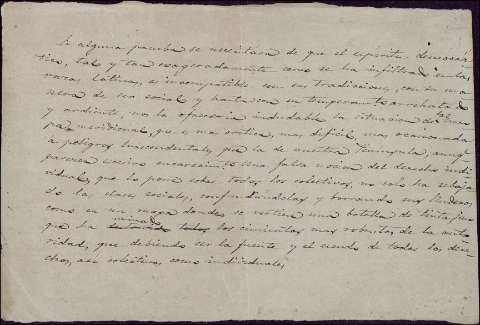 Si alguna prueba se necesitara de que el espíritu democrá-
tico, tal y tan exageradamente como se ha infiltrado en las
razas latinas, es incompatible con sus tradiciones, con su ma-
nera de ser social y hasta con su temperamento arrebatado
y ardiente, no la ofrecería indudable la situación de la Eu-
ropa meridional, que es más crítica, más difícil, más ocasionada
a peligros trascendentales, que la de nuestra Península, aunque
parezca exceso encarecimiento. Una falsa noción del derecho indi-
vidual, que lo pone sobre todos los colectivos, no solo ha subverti-
do las clases sociales, confundiéndolas y borrando sus linderos,
como en un mapa donde se vertiera una botella de tinta, sino
que ha minado los cimientos más robustos de la auto-
ridad, que debiendo ser la fuente y el escudo de todos los dere-
chos, así colectivos, como individuales,